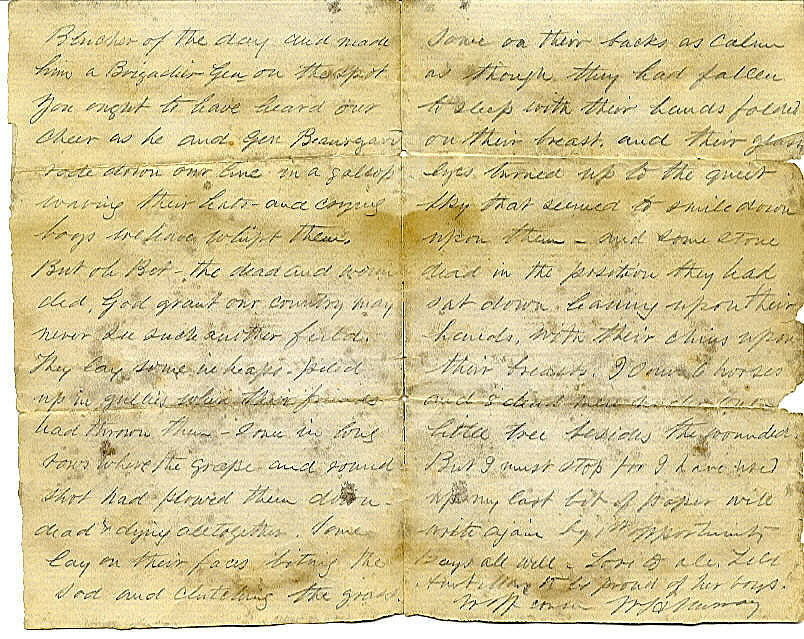 Blucher of the day and made
him a Brigadier Gen on the spot
You ought to have heard our
cheer as he and Gen Beauregard
rode down our line in a gallop
waving their hats and crying
boys we have whipt them.
But oh Bet - the dead and woun
ded, God grant our country may
never see such another field.
They lay some in heaps - piled
up in gullies when their friends
had thrown them - some in long
rows where the grape and round
shot had plowed them down -
dead & dying altogether. Some
lay on their faces biting the
sod and clutching the grass.
Some on their backs as calm
as though they had fallen
to sleep with their hands folded
on their breast. and their glassy
eyes turned up to the quiet
sky that seemed to smile down
upon them - and some stone
dead in the position they had
sat down. leaning upon their
hands, with their chins upon
their breasts. I saw 6 horses
and 8 dead men under one
little tree besides the wounded.
But I must stop for I have used
up my last bit of paper will
write again by 1st opportunity
Boys all well - Love to all. Tell
Aunt Mary to be proud of her boys.
Murray